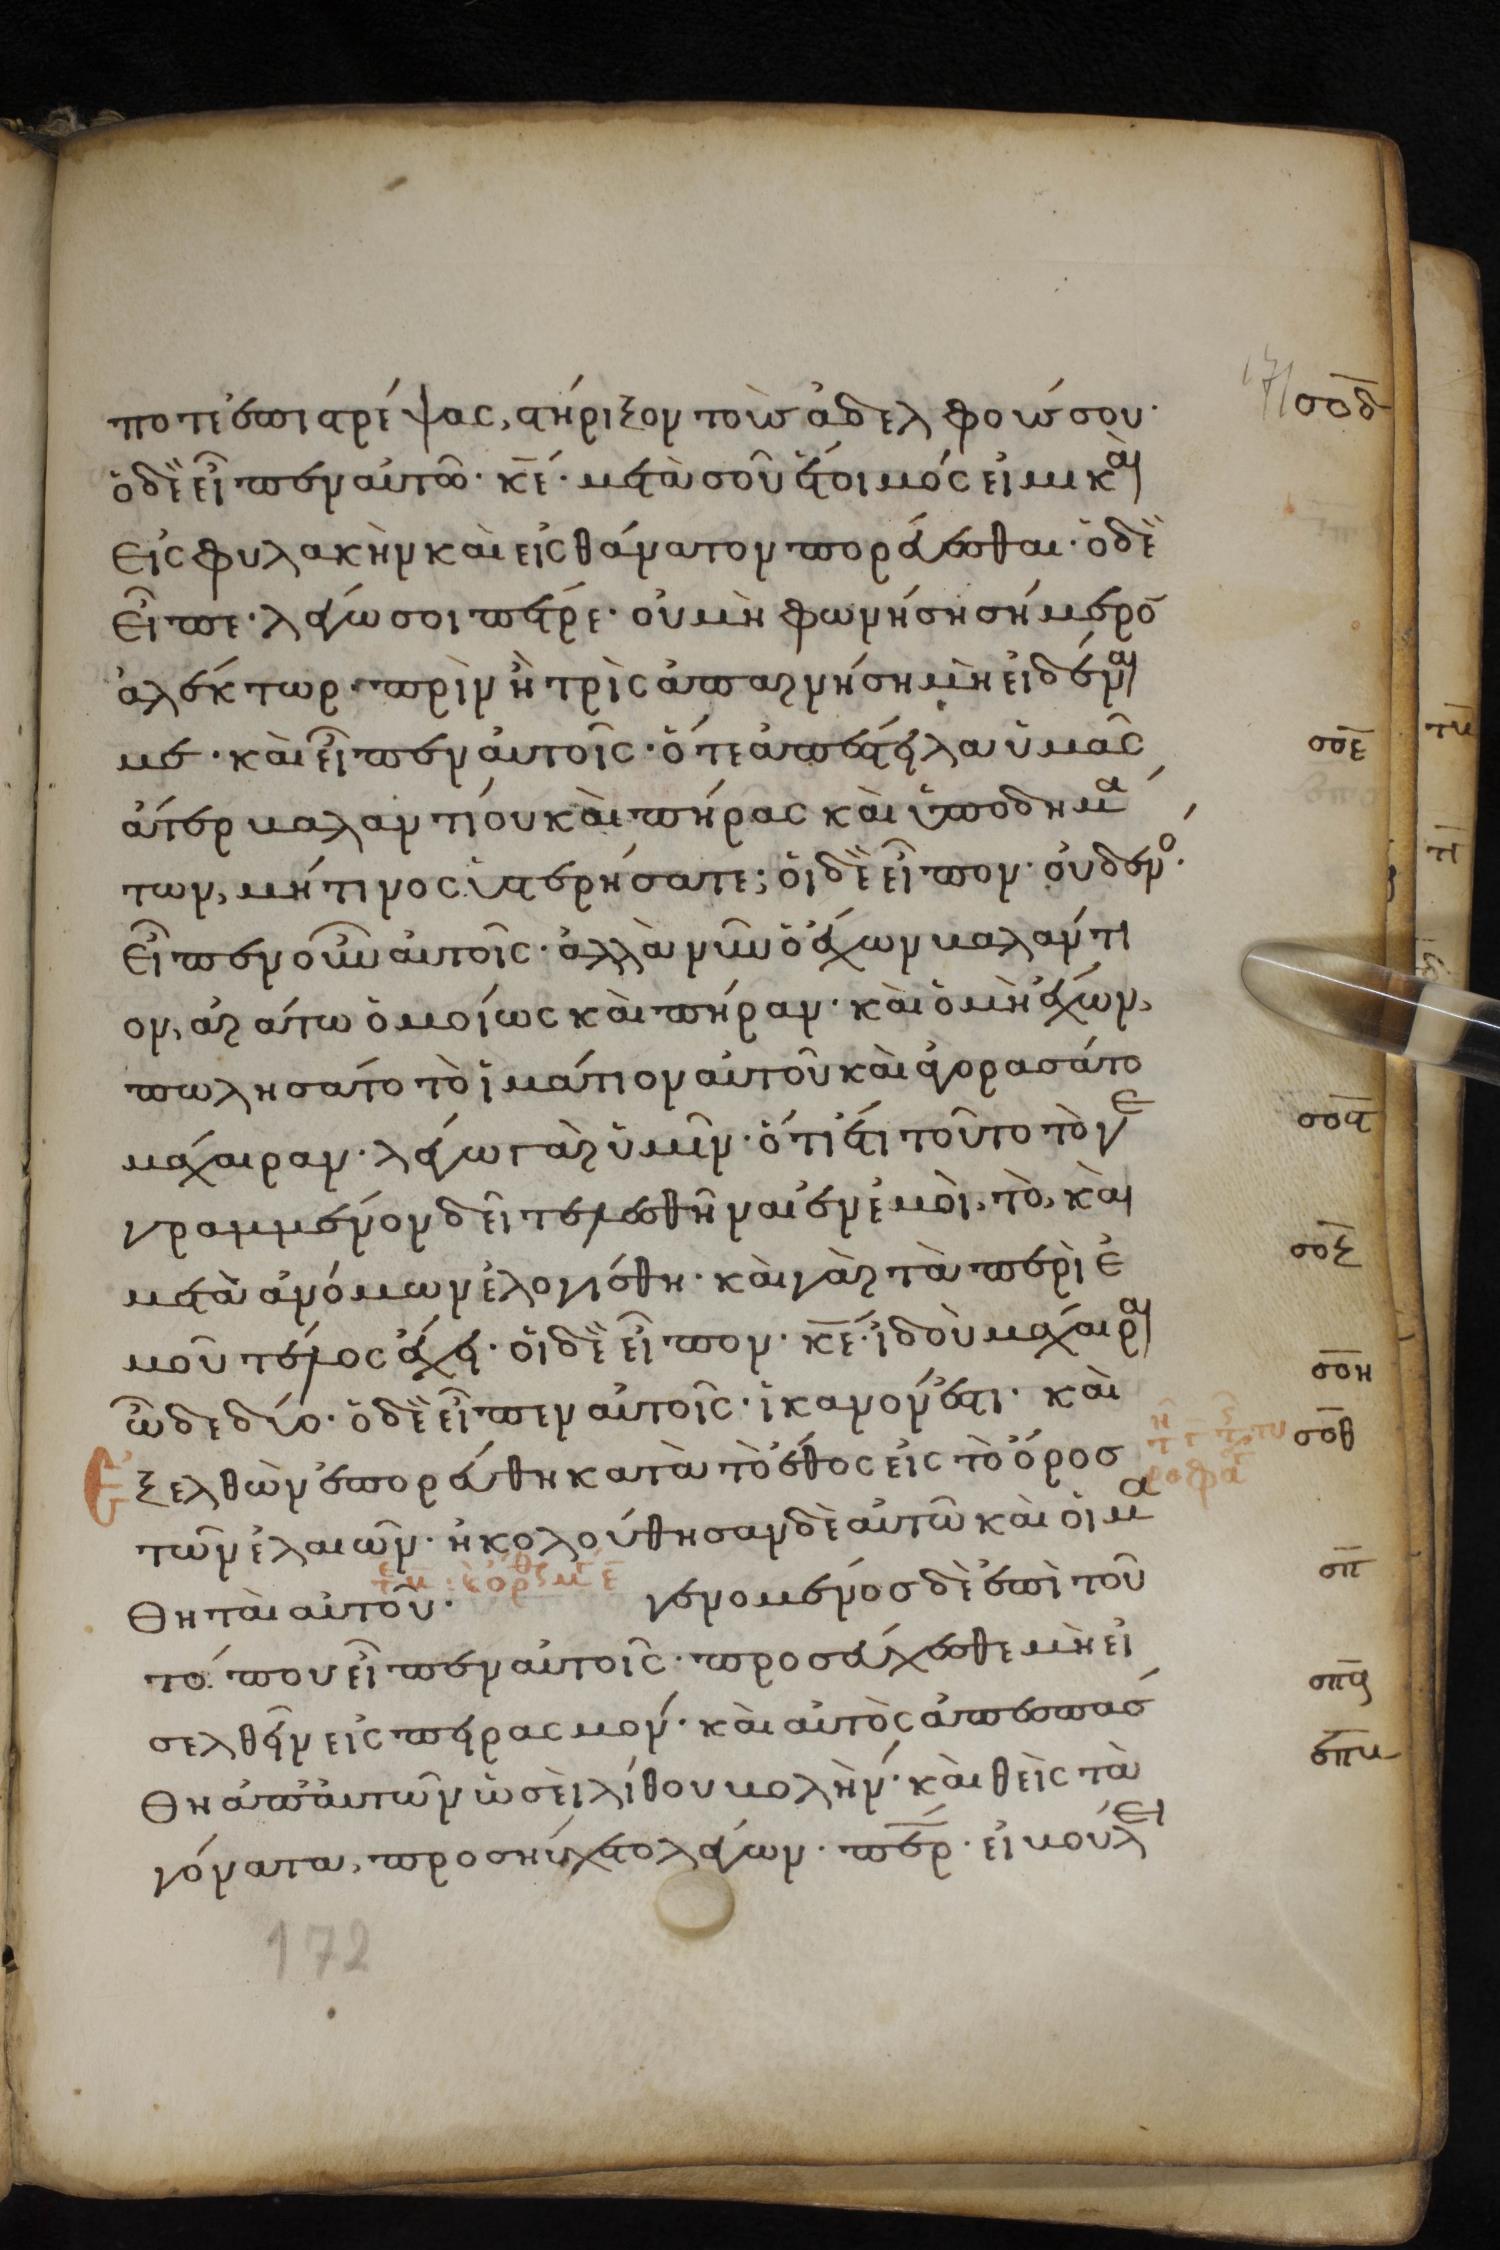 ποτε ἐπιστρέψας, στήριξον τοὺς ἀδελφούς σου· σοδ
ὁ δὲ εἶπεν αὐτῶ· κε· μετὰ σοῦ ἕτοιμός εἰμι καὶ
εἰς φυλακὴν καὶ εἰς θάνατον πορεύεσθαι· ὁ δὲ
εἶπε· λέγω σοι πέτρε· οὐ μὴ φωνήση σήμερο
ἀλέκτωρ· πρὶν ἢ τρὶς ἀπαρνήση μὴ εἰδέναι
με· καὶ εἶπεν αὐτοῖς· ὅτε ἀπέστειλα ὑμᾶς σοε
ἄτερ βαλαντίου καὶ πήρας καὶ ὑποδημά
των, μή τινος ὑστερήσατε; οἱ δὲ εἶπον· οὐδενό·
εἶπεν οὖν αὐτοῖς· ἀλλὰ νῦν ὁ ἔχων βαλάντι
ον, ἀράτω ὁμοίως καὶ πήραν· καὶ ὁ μὴ ἔχων,
πωλησάτο τὸ ἱμάτιον αὐτοῦ καὶ ἀγορασάτο
μάχαιραν· λέγω γὰρ ὑμῖν· ὅτι ἔτι τοῦτο τὸ γε σοϛ
γραμμένον δεῖ τελεσθῆναι ἐν ἐμοὶ, τὸ, καὶ
μετὰ ἀνόμων ἐλογίσθη· καὶ γὰρ τὰ περὶ ἐ σοζ
μοῦ τέλος ἔχει· οἱ δὲ εἶπον· κε· ἰδοὺ μάχαιραι
ὧδε δύο· ὁ δὲ εἶπεν αὐτοῖς· ἱκανόν ἐστι· καὶ σοη
ἐξελθὼν ἐπορεύθη κατὰ τὸ ἔθος εἰς τὸ ὄρος σοθ
τῶν ἐλαιῶν· ἠκολούθησαν δὲ αὐτῶ καὶ οἱ μα
θηταὶ αὐτοῦ· γενομένος δὲ ἐπὶ τοῦ σπ
τόπου εἶπεν αὐτοῖς· προσεύχεσθε μὴ εἰ
σελθεῖν εἰς πειρασμόν· καὶ αὐτὸς ἀπεσπάσ σπα
θη ἀπ' αὐτῶν ὡσεὶ λίθου βολὴν· καὶ θεὶς τὰ σπβ
γόνατα, προσηύχετο λέγων· περ· εἰ βούλει
172